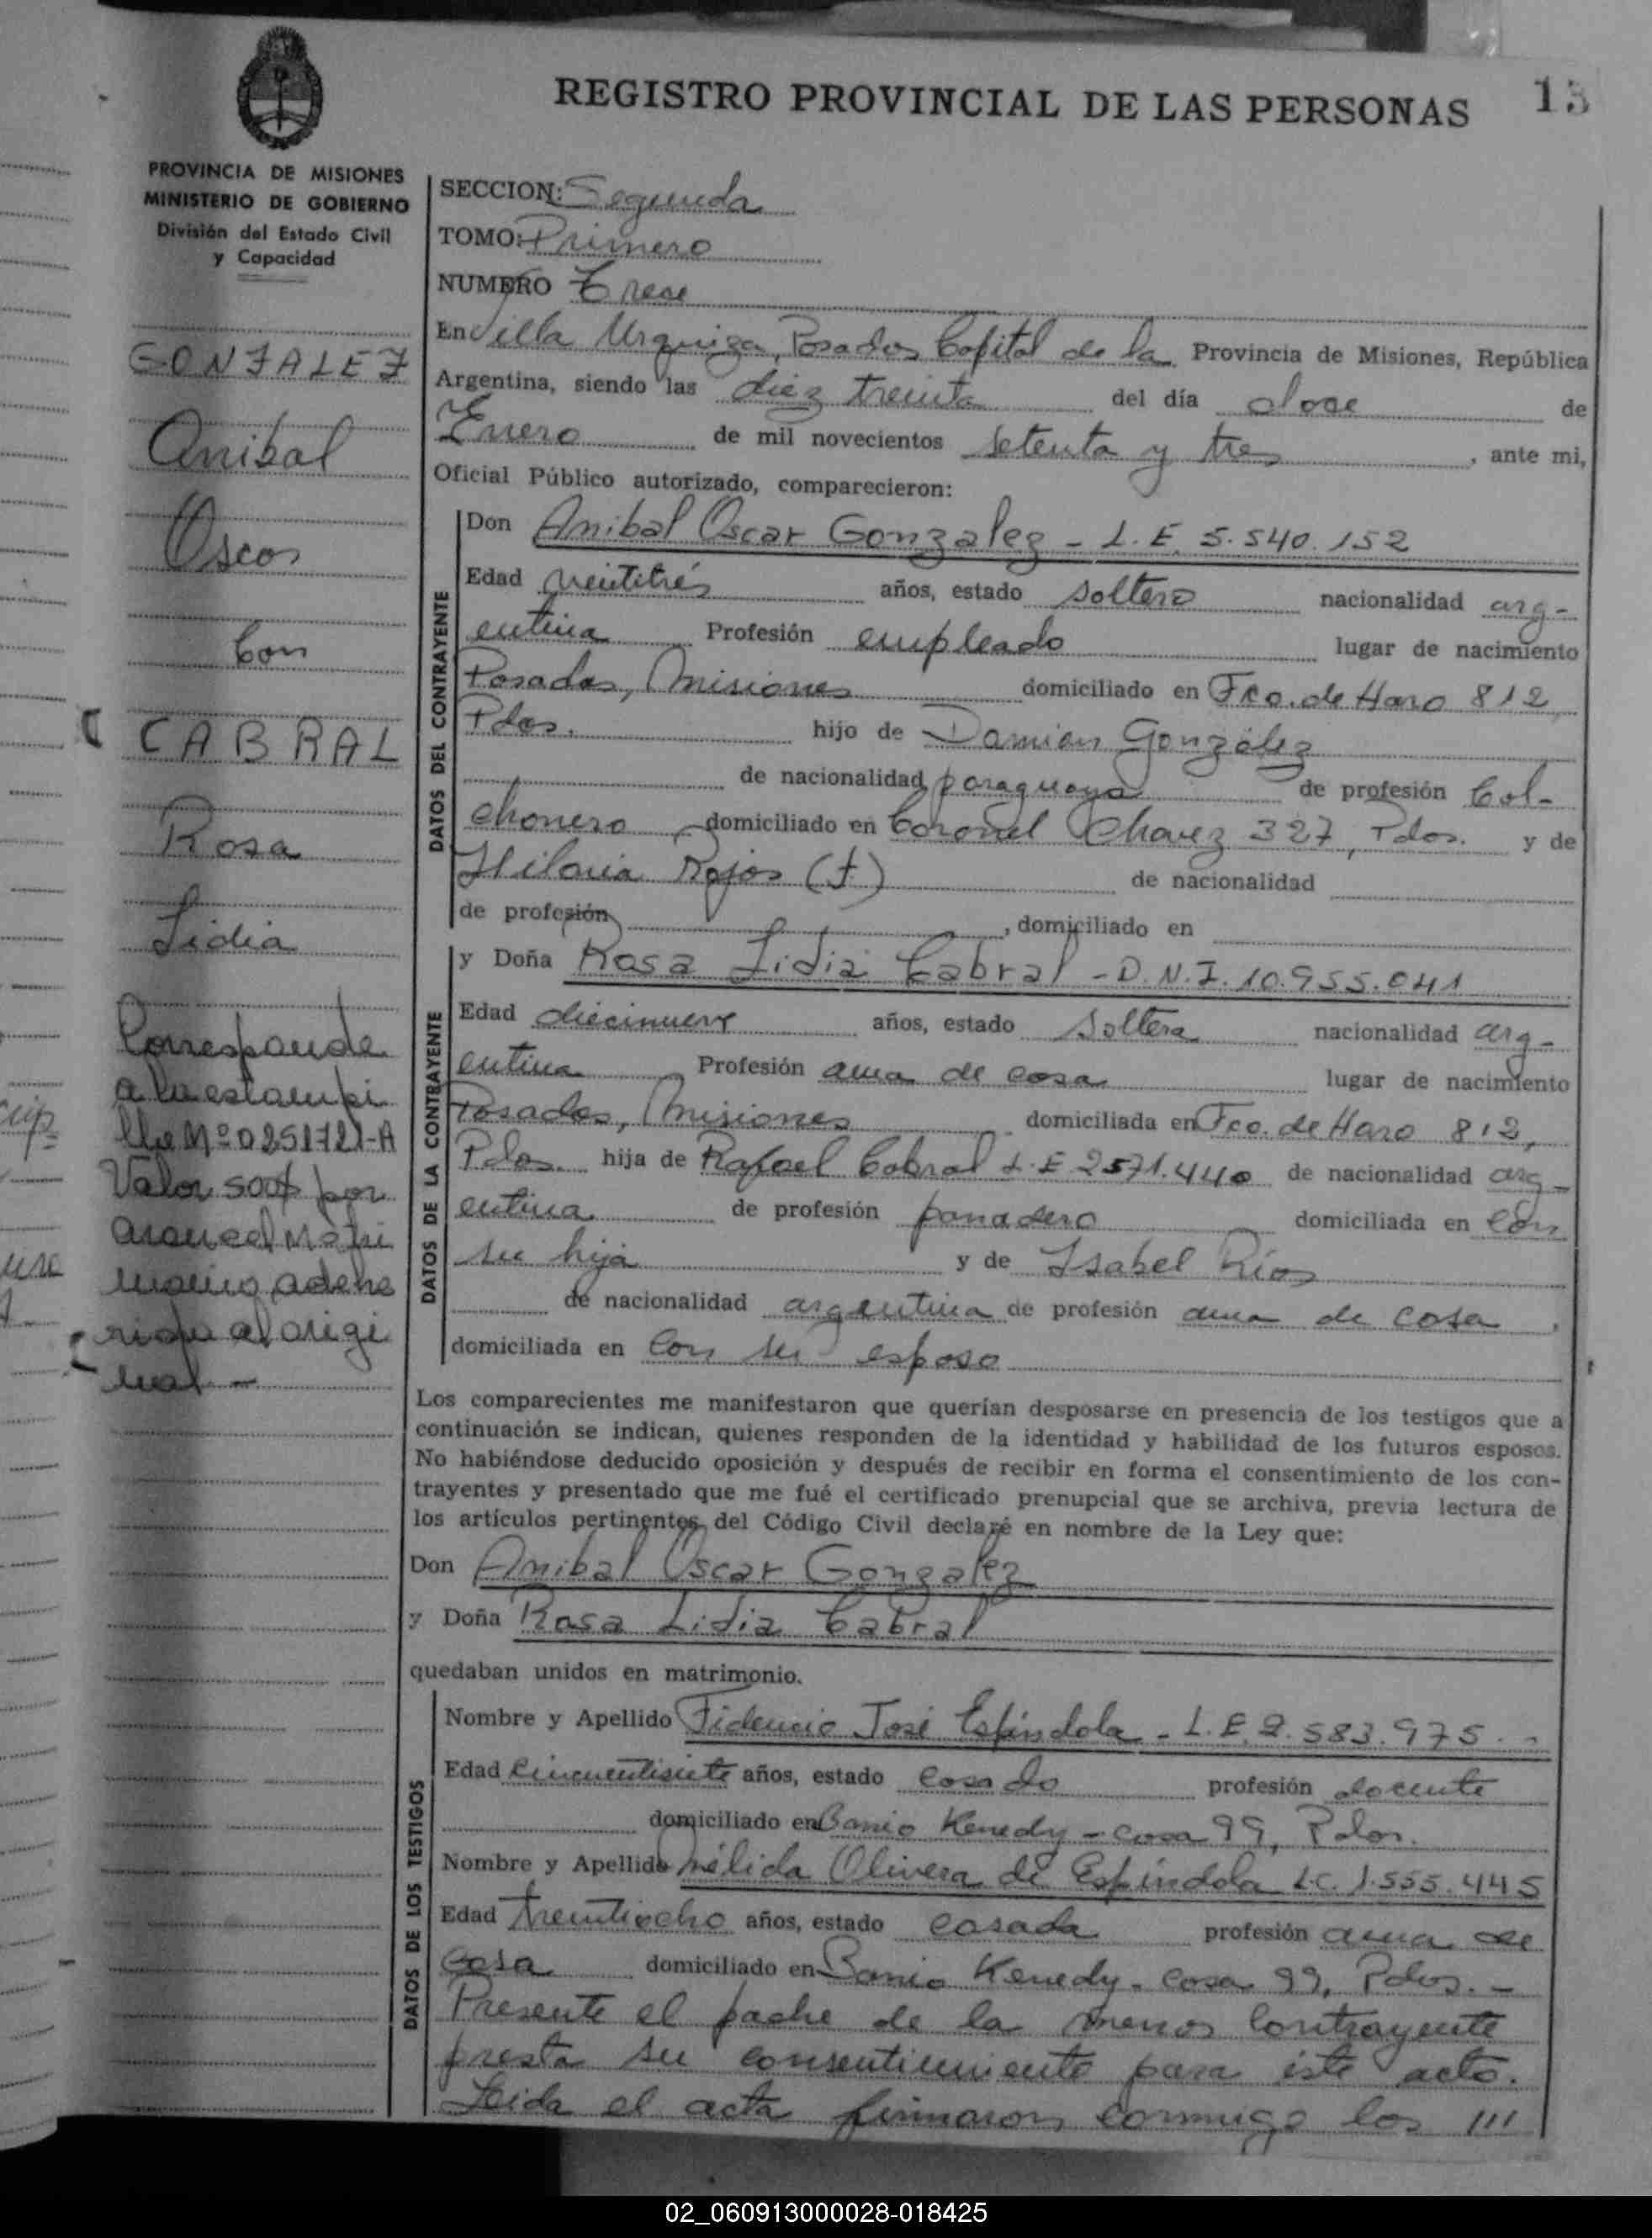 REGISTRO PROVINCIAL DE LAS PERSONAS
13
PROVINCIA DE MISIONES
MINISTERIO DE GOBIERNO
División del Estado Civil
y Capacidad
GONZALEZ
Anibal
Oscar
Con
CABRAL
Rosa
Lidia
Corresponde
a la estampi
lla Nº 0251721-A
Valor 500$ por
arancel Matri
monio, adhe
rida al origi
nal -
SECCION: Segunda
TOMO: Primero
NUMERO Trece
En Villa Urquiza, Posadas Capital de la Provincia de Misiones, República
Argentina, siendo las diez treinta del día doce de
Enero de mil novecientos setenta y tres, ante mi,
Oficial Público autorizado, comparecieron:
DATOS DEL CONTRAYENTE
Don Anibal Oscar Gonzalez - L.E. 5.540.152
Edad veintitrés años, estado soltero nacionalidad arg-
entina Profesión empleado lugar de nacimiento
Posadas, Misiones domiciliado en Fco. de Haro 812
Pdas. hijo de Damian González
de nacionalidad paraguaya de profesión Col-
chonero domiciliado en Coronel Chavez 327, Pdas. y de
Hilaria Rojas (†) de nacionalidad
de profesión , domiciliado en
DATOS DE LA CONTRAYENTE
y Doña Rosa Lidia Cabral - D.N.I. 10.955.041
Edad diecinueve años, estado soltera nacionalidad arg-
entina Profesión ama de casa lugar de nacimiento
Posadas, Misiones domiciliada en Fco. de Haro 812,
Pdas. hija de Rafael Cabral L.E 2571.440 de nacionalidad arg-
entina de profesión panadero domiciliada en con
su hija y de Isabel Ríos
de nacionalidad argentina de profesión ama de casa ,
domiciliada en con su esposo
Los comparecientes me manifestaron que querían desposarse en presencia de los testigos que a
continuación se indican, quienes responden de la identidad y habilidad de los futuros esposos.
No habiéndose deducido oposición y después de recibir en forma el consentimiento de los con-
trayentes y presentado que me fué el certificado prenupcial que se archiva, previa lectura de
los artículos pertinentes del Código Civil declaré en nombre de la Ley que:
Don Anibal Oscar Gonzalez
y Doña Rosa Lidia Cabral
quedaban unidos en matrimonio.
DATOS DE LOS TESTIGOS
Nombre y Apellido Fidencio José Espíndola - L.E. 2.583.975
Edad cincuentisiete años, estado casado profesión docente
domiciliado en Barrio Kenedy - casa 99, Pdas.
Nombre y Apellido Mélida Olivera de Espíndola L.C. 1.555.445
Edad treintiocho años, estado casada profesión ama de
casa domiciliado en Barrio Kenedy - casa 99, Pdas. -
Presente el padre de la menor contrayente
presta su consentimiento para éste acto.
Leida el acta firmaron conmigo los ///
02_060913000028-018425